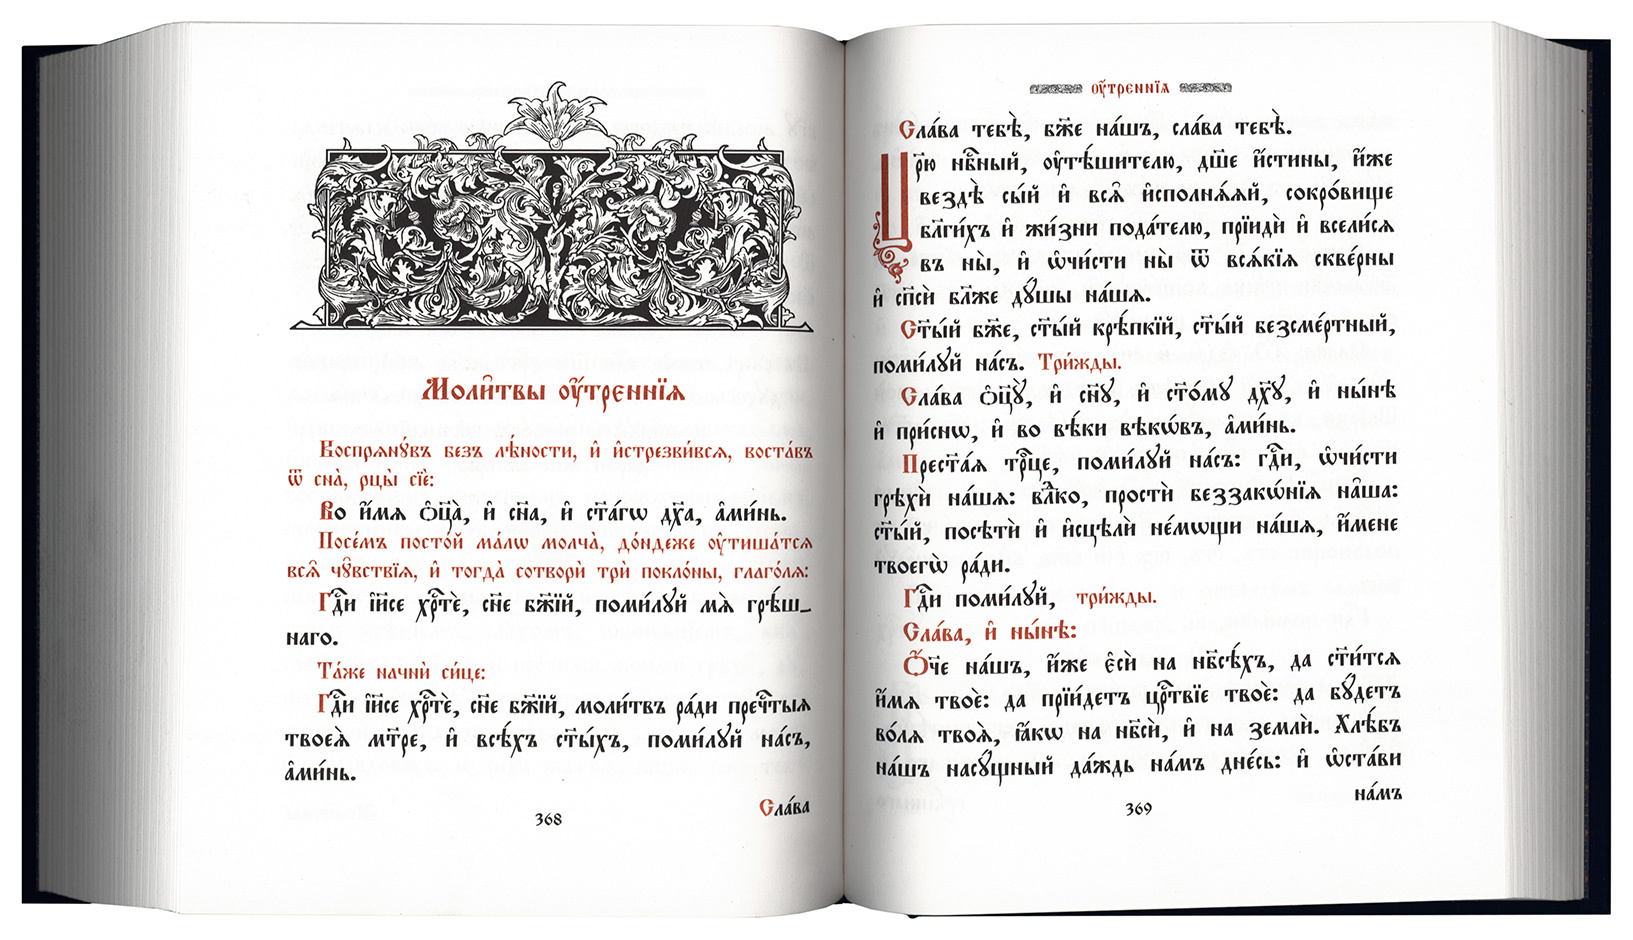 Моли̑твы ᲂу҆́треннїѧ
Воспрѧнꙋ́въ без̾ лѣ́ности, и҆ и҆стрезви́всѧ, воста́въ
ѿ сна̀, рцы̀ сїѐ:
Во и҆́мѧ ѻ҆ц҃а̀, и҆ сн҃а, и҆ ст҃а́гѡ дх҃а, а҆ми́нь.
Посе́мъ посто́й ма́лѡ молча̀, до́ндеже ᲂу҆тиша́тсѧ
всѧ҄ чꙋ̑вствїѧ, и҆ тогда̀ сотворѝ трѝ покло́ны, глаго́лѧ:
Гдⷭ҇и і҆и҃се хрⷭ҇тѐ, сн҃е бж҃їй, поми́лꙋй мѧ̀ грѣ́ш_
наго.
Та́же начнѝ си́це:
Гдⷭ҇и і҆и҃се хрⷭ҇тѐ, сн҃е бж҃їй, моли́твъ ра́ди пречⷭ҇тыѧ
твоеѧ̀ мт҃ре, и҆ всѣ́хъ ст҃ы́хъ, поми́лꙋй на́съ,
а҆ми́нь.
Сла́ва
368
ᲂу҆́треннїѧ
Сла́ва тебѣ̀, бж҃е на́шъ, сла́ва тебѣ̀.
Цр҃ю̀ нбⷭ҇ный, ᲂу҆тѣ́шителю, дш҃е и҆́стины, и҆́же
вездѣ̀ сы́й и҆ всѧ̑ и҆сполнѧ́ѧй, сокро́вище
бл҃ги́хъ и҆ жи́зни пода́телю, прїидѝ и҆ всели́сѧ
въ ны̀, и҆ ѡ҆чи́сти ны̀ ѿ всѧ́кїѧ скве́рны
и҆ сп҃сѝ бл҃же дꙋ́шы на́шѧ.
Ст҃ы́й бж҃е, ст҃ы́й крѣ́пкїй, ст҃ы́й безсме́ртный,
поми́лꙋй на́съ. Три́жды.
Сла́ва ѻ҆ц҃ꙋ̀, и҆ сн҃ꙋ, и҆ ст҃о́мꙋ дх҃ꙋ, и҆ ны́нѣ
и҆ при́снѡ, и҆ во вѣ́ки вѣкѡ́въ, а҆ми́нь.
Прест҃а́ѧ трⷪ҇це, поми́лꙋй на́съ: гдⷭ҇и, ѡ҆чи́сти
грѣхѝ на́шѧ: влⷣко, простѝ беззакѡ́нїѧ на̑ша:
ст҃ы́й, посѣтѝ и҆ и҆сцѣлѝ не́мощи на́шѧ, и҆́мене
твоегѡ̀ ра́ди.
Гдⷭ҇и поми́лꙋй, три́жды.
Сла́ва, и҆ ны́нѣ:
Ѻ҆́ч҃е на́шъ, и҆́же є҆сѝ на нб҃сѣ́хъ, да ст҃и́тсѧ
и҆́мѧ твоѐ: да прїи́детъ црⷭ҇твїе твоѐ: да бꙋ́детъ
во́лѧ твоѧ̀, ꙗ҆́кѡ на нб҃сѝ, и҆ на землѝ. Хлѣ́бъ
на́шъ насꙋ́щный да́ждь на́мъ дне́сь: и҆ ѡ҆ста́ви
на́мъ
369